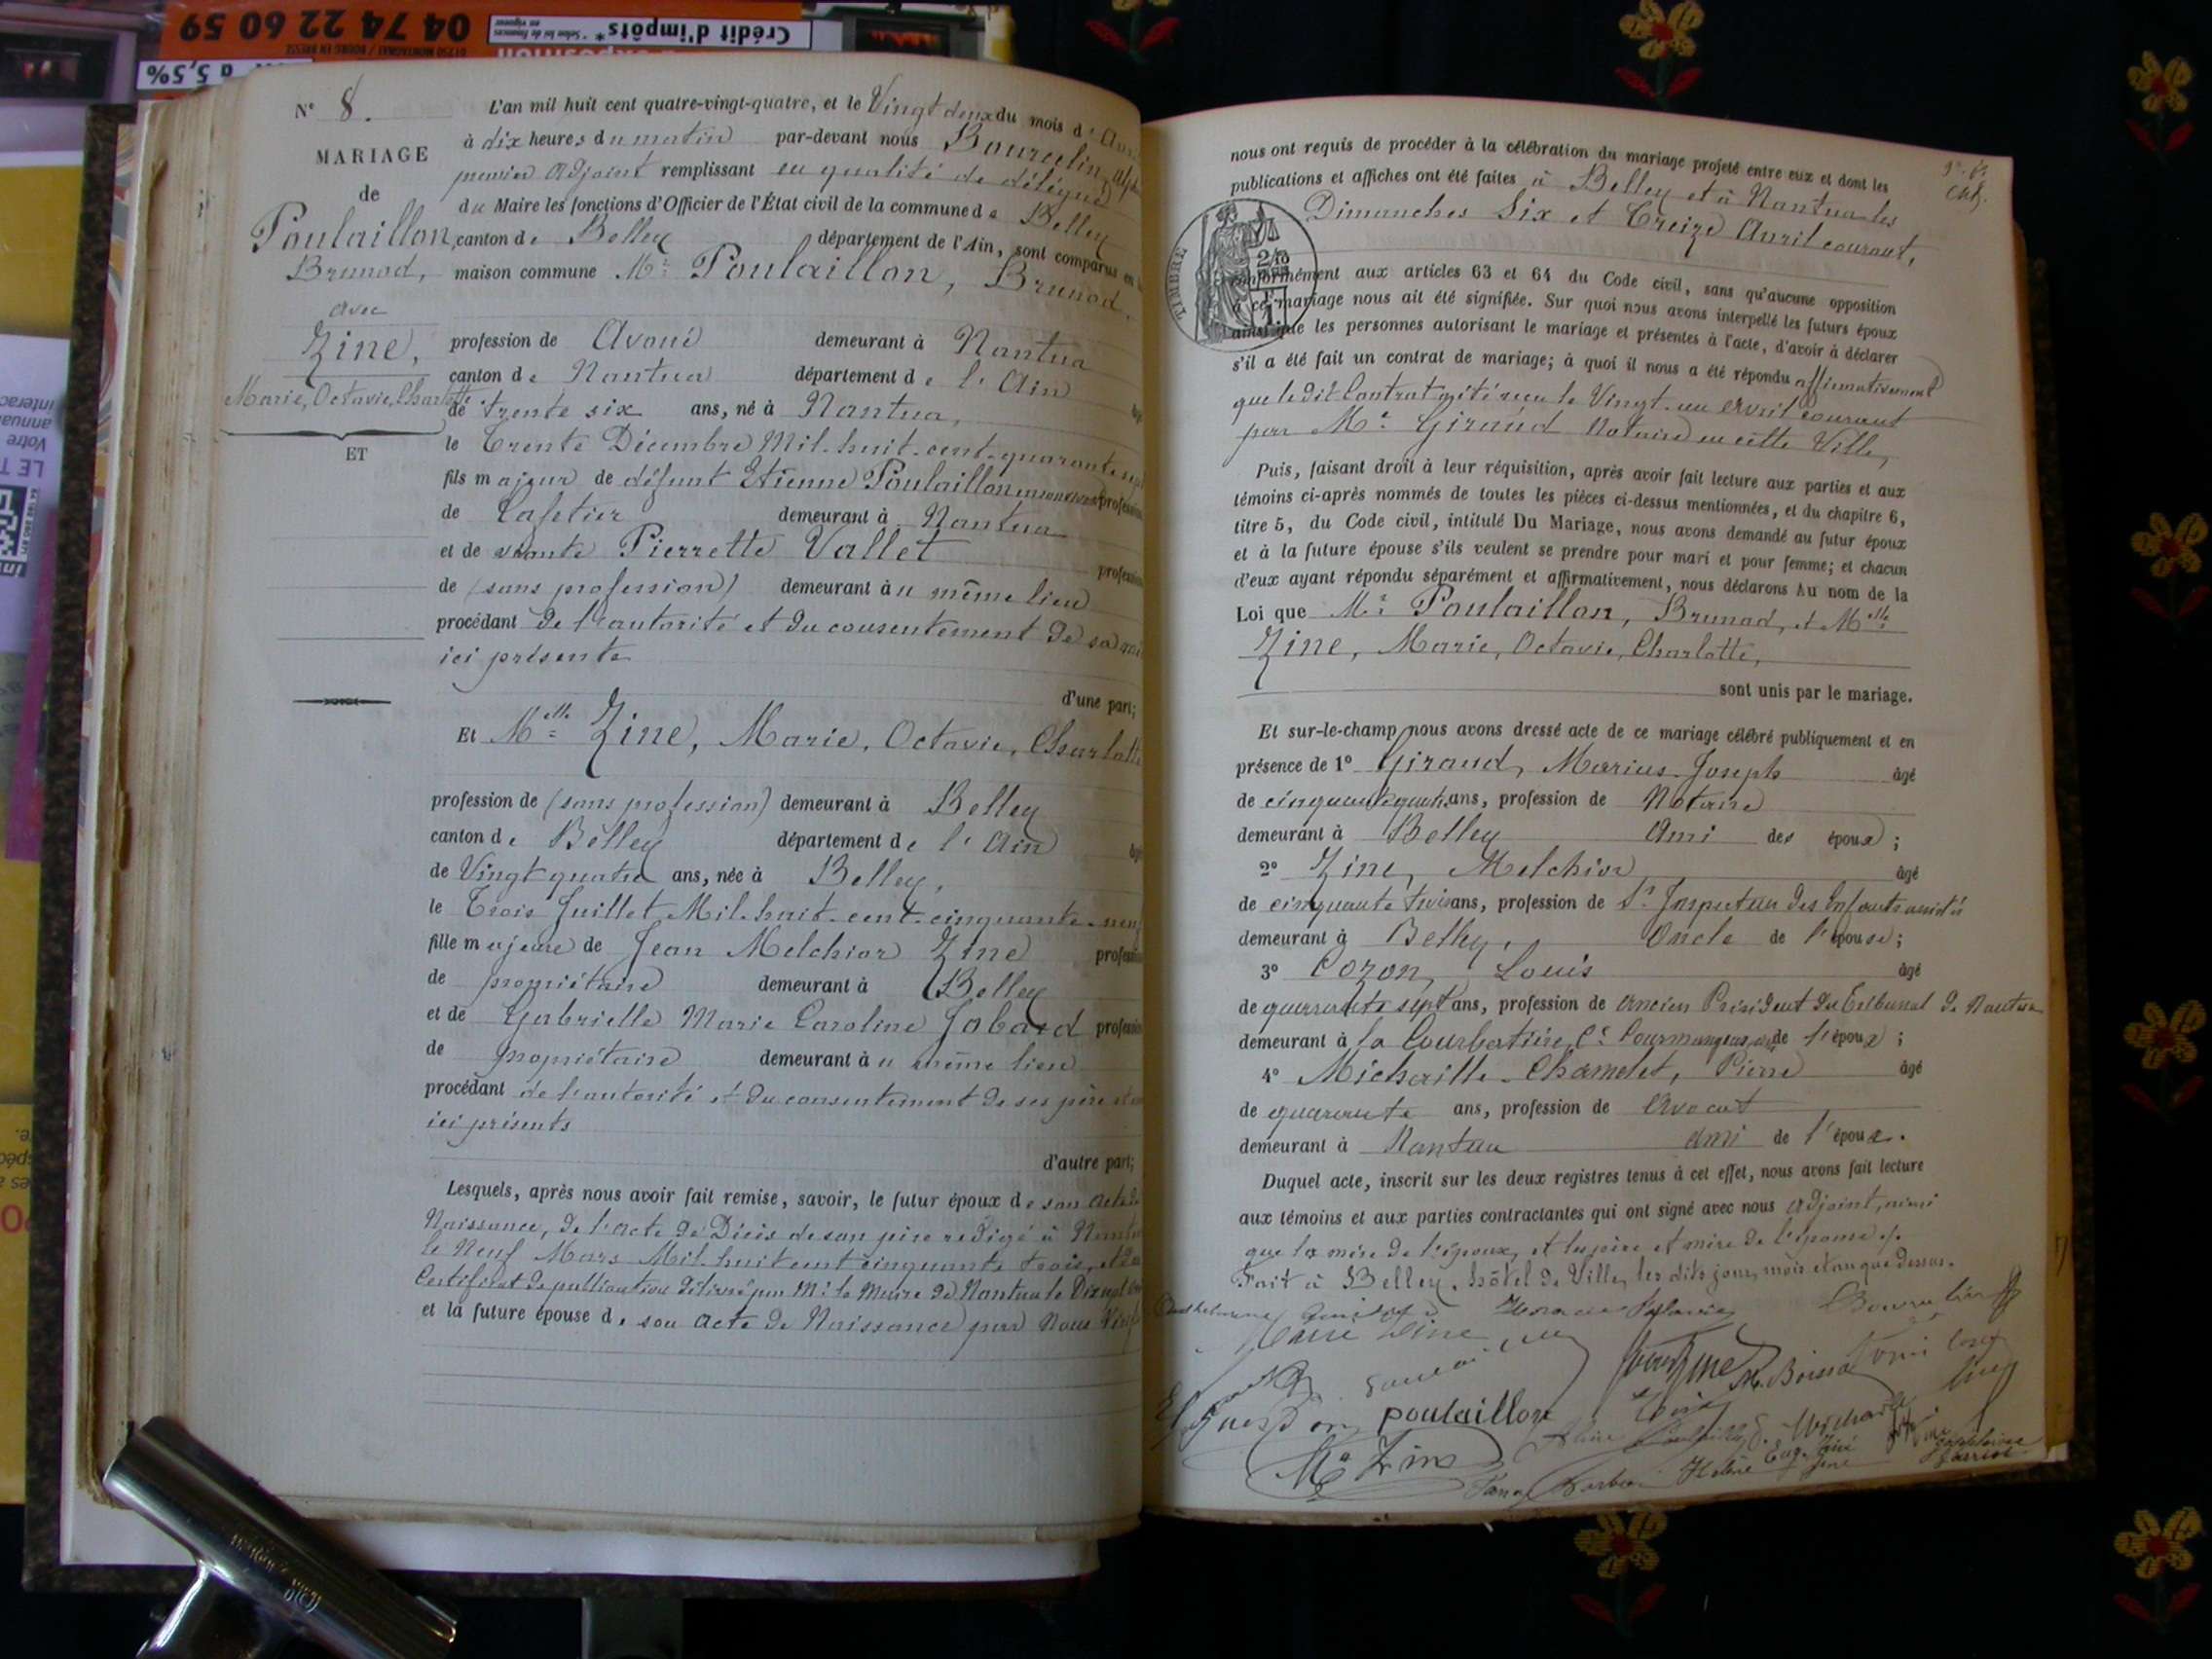 04 74 22 60 59
Crédit d'impôts*
à 5,5%
N° 8.
MARIAGE
de
Poulaillon,
Brunod,
avec
Zine,
Marie, Octavie, Charlotte
ET
L'an mil huit cent quatre-vingt-quatre, et le Vingt deux du mois d'
à dix heures du matin par-devant nous Bourcelin,
premier adjoint remplissant en qualité de délégué
du Maire les fonctions d'Officier de l'État civil de la commune de Belley
canton de Belley département de l'Ain, sont comparus en
maison commune Mr Poulaillon, Brunod,
profession de Avoué demeurant à Nantua
canton de Nantua département de l'Ain
de trente six ans, né à Nantua,
le Trente Décembre Mil-huit-cent-quarante
fils majeur de défunt Etienne Poulaillon
de Cafetier demeurant à Nantua
et de vivante Pierrette Vallet
de (sans profession) demeurant au même lieu
procédant de l'autorité et du consentement de sa
ici présente
d'une part;
Et Melle Zine, Marie, Octavie, Charlotte
profession de (sans profession) demeurant à Belley
canton de Belley département de l'Ain
de Vingt quatre ans, née à Belley,
le Trois Juillet Mil-huit-cent-cinquante-neuf
fille majeure de Jean Melchior Zine
de propriétaire demeurant à Belley
et de Gabrielle Marie Caroline Jobard
de propriétaire demeurant au même lieu
procédant de l'autorité et du consentement de ses père et
ici présents
d'autre part;
Lesquels, après nous avoir fait remise, savoir, le futur époux de son acte de
Naissance, de l'acte de Décès de son père rédigé à
le Neuf Mars Mil-huit cent cinquante trois, et du
Certificat de publication délivré par Mr le Maire de Nantua le
et la future épouse de son acte de Naissance par Nous
nous ont requis de procéder à la célébration du mariage projeté entre eux et dont les
publications et affiches ont été faites à Belley et à Nantua les
Dimanches Six et Treize Avril courant,
TIMBRE
conformément aux articles 63 et 64 du Code civil, sans qu'aucune opposition
à ce mariage nous ait été signifiée. Sur quoi nous avons interpellé les futurs époux
ainsi que les personnes autorisant le mariage et présentes à l'acte, d'avoir à déclarer
s'il a été fait un contrat de mariage; à quoi il nous a été répondu affirmativement
que le dit Contrat a été reçu le Vingt-un avril courant
par Me Giraud Notaire en cette Ville,
Puis, faisant droit à leur réquisition, après avoir fait lecture aux parties et aux
témoins ci-après nommés de toutes les pièces ci-dessus mentionnées, et du chapitre 6,
titre 5, du Code civil, intitulé Du Mariage, nous avons demandé au futur époux
et à la future épouse s'ils veulent se prendre pour mari et pour femme; et chacun
d'eux ayant répondu séparément et affirmativement, nous déclarons Au nom de la
Loi que Mr Poulaillon, Brunod, et Melle
Zine, Marie, Octavie, Charlotte,
sont unis par le mariage.
Et sur-le-champ nous avons dressé acte de ce mariage célébré publiquement et en
présence de 1° Giraud, Marius-Joseph âgé
de cinquante quatre ans, profession de Notaire
demeurant à Belley Ami des époux;
2° Zine, Melchior âgé
de cinquante trois ans, profession de Inspecteur des Enfants assistés
demeurant à Belley, Oncle de l'épouse;
3° Cozon, Louis âgé
de quarante sept ans, profession de Ancien Président du Tribunal de Nantua
demeurant à la Courbatière, de l'époux;
4° Michaille-Chamelet, Pierre âgé
de quarante ans, profession de Avocat
demeurant à Nantua ami de l'époux.
Duquel acte, inscrit sur les deux registres tenus à cet effet, nous avons fait lecture
aux témoins et aux parties contractantes qui ont signé avec nous adjoint, ainsi
que la mère de l'époux, et les père et mère de l'épouse.
Fait à Belley, hôtel de Ville, les dits jour, mois et an que dessus.
Poulaillon
M. Zine